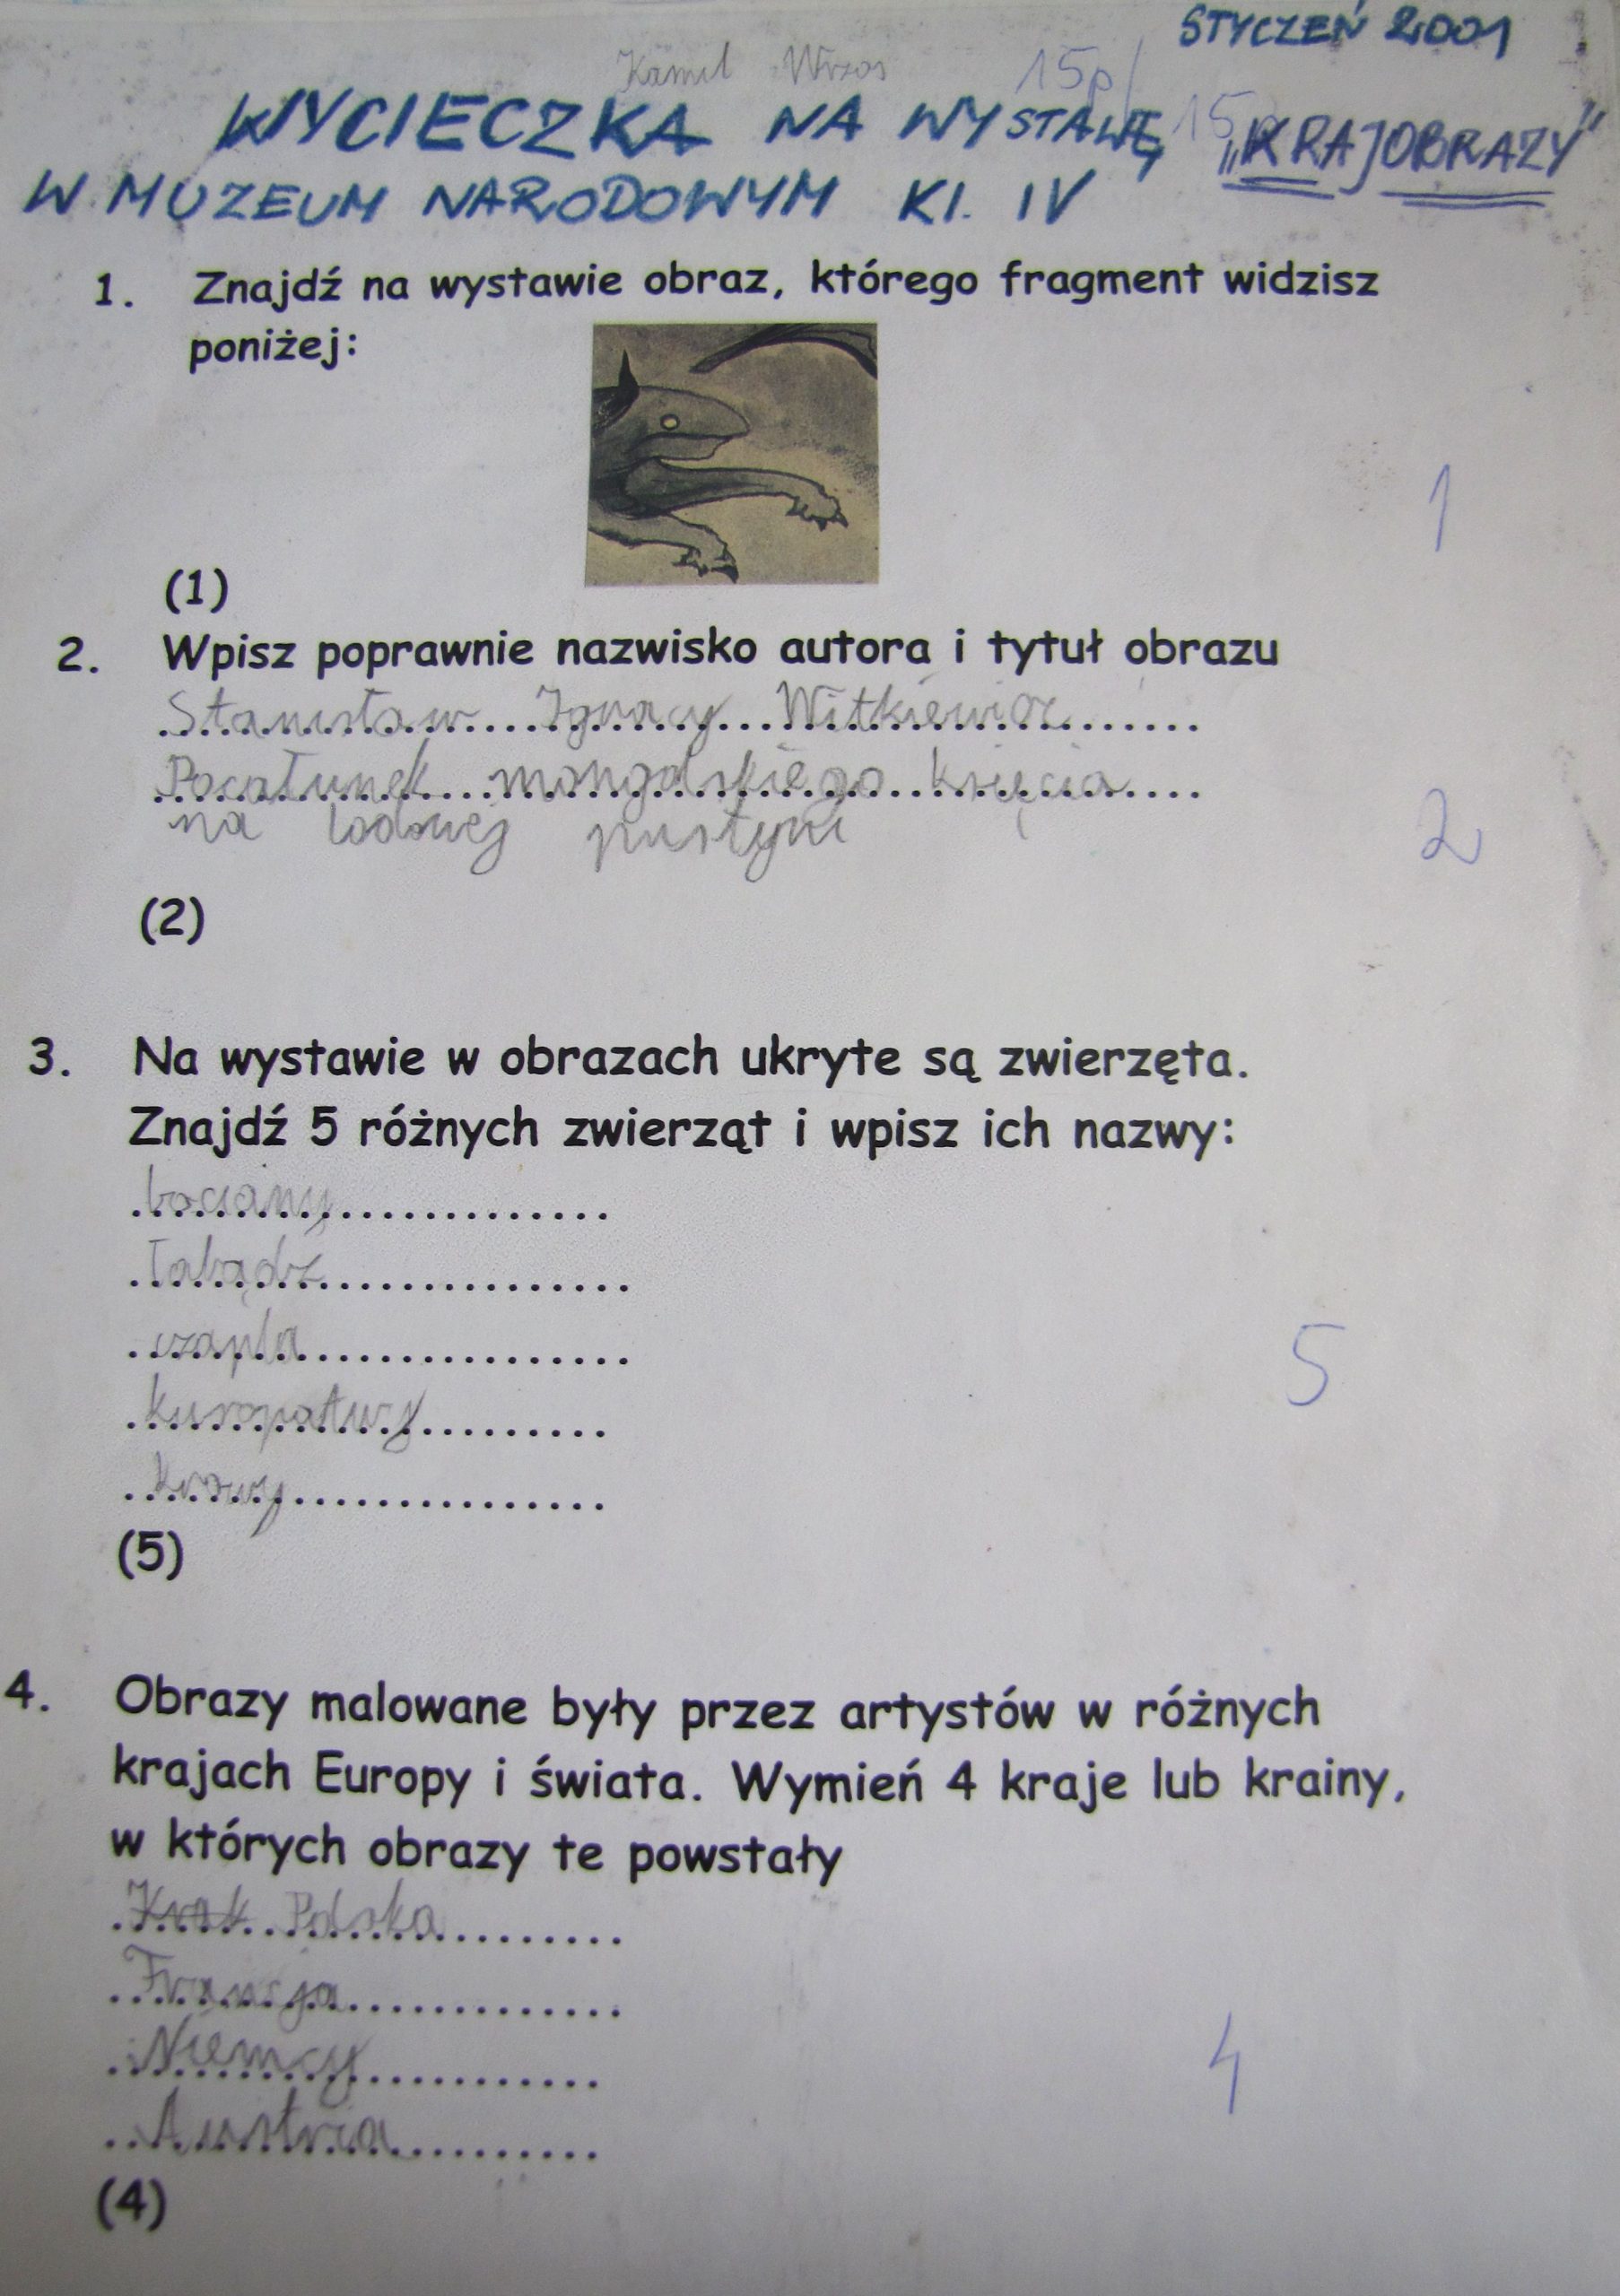 STYCZEŃ 2001
Kamil Wrzos 15p/15p
WYCIECZKA NA WYSTAWĘ „KRAJOBRAZY"
W MUZEUM NARODOWYM Kl. IV
1. Znajdź na wystawie obraz, którego fragment widzisz
poniżej:
1
(1)
2. Wpisz poprawnie nazwisko autora i tytuł obrazu
Stanisław Ignacy Witkiewicz
Pocałunek mongolskiego księcia
na lodowej pustyni
2
(2)
3. Na wystawie w obrazach ukryte są zwierzęta.
Znajdź 5 różnych zwierząt i wpisz ich nazwy:
bociany
łabądź
czapla
kuropatwy
5
krowy
(5)
4. Obrazy malowane były przez artystów w różnych
krajach Europy i świata. Wymień 4 kraje lub krainy,
w których obrazy te powstały
Krak Polska
Francja
Niemcy
4
Austria
(4)